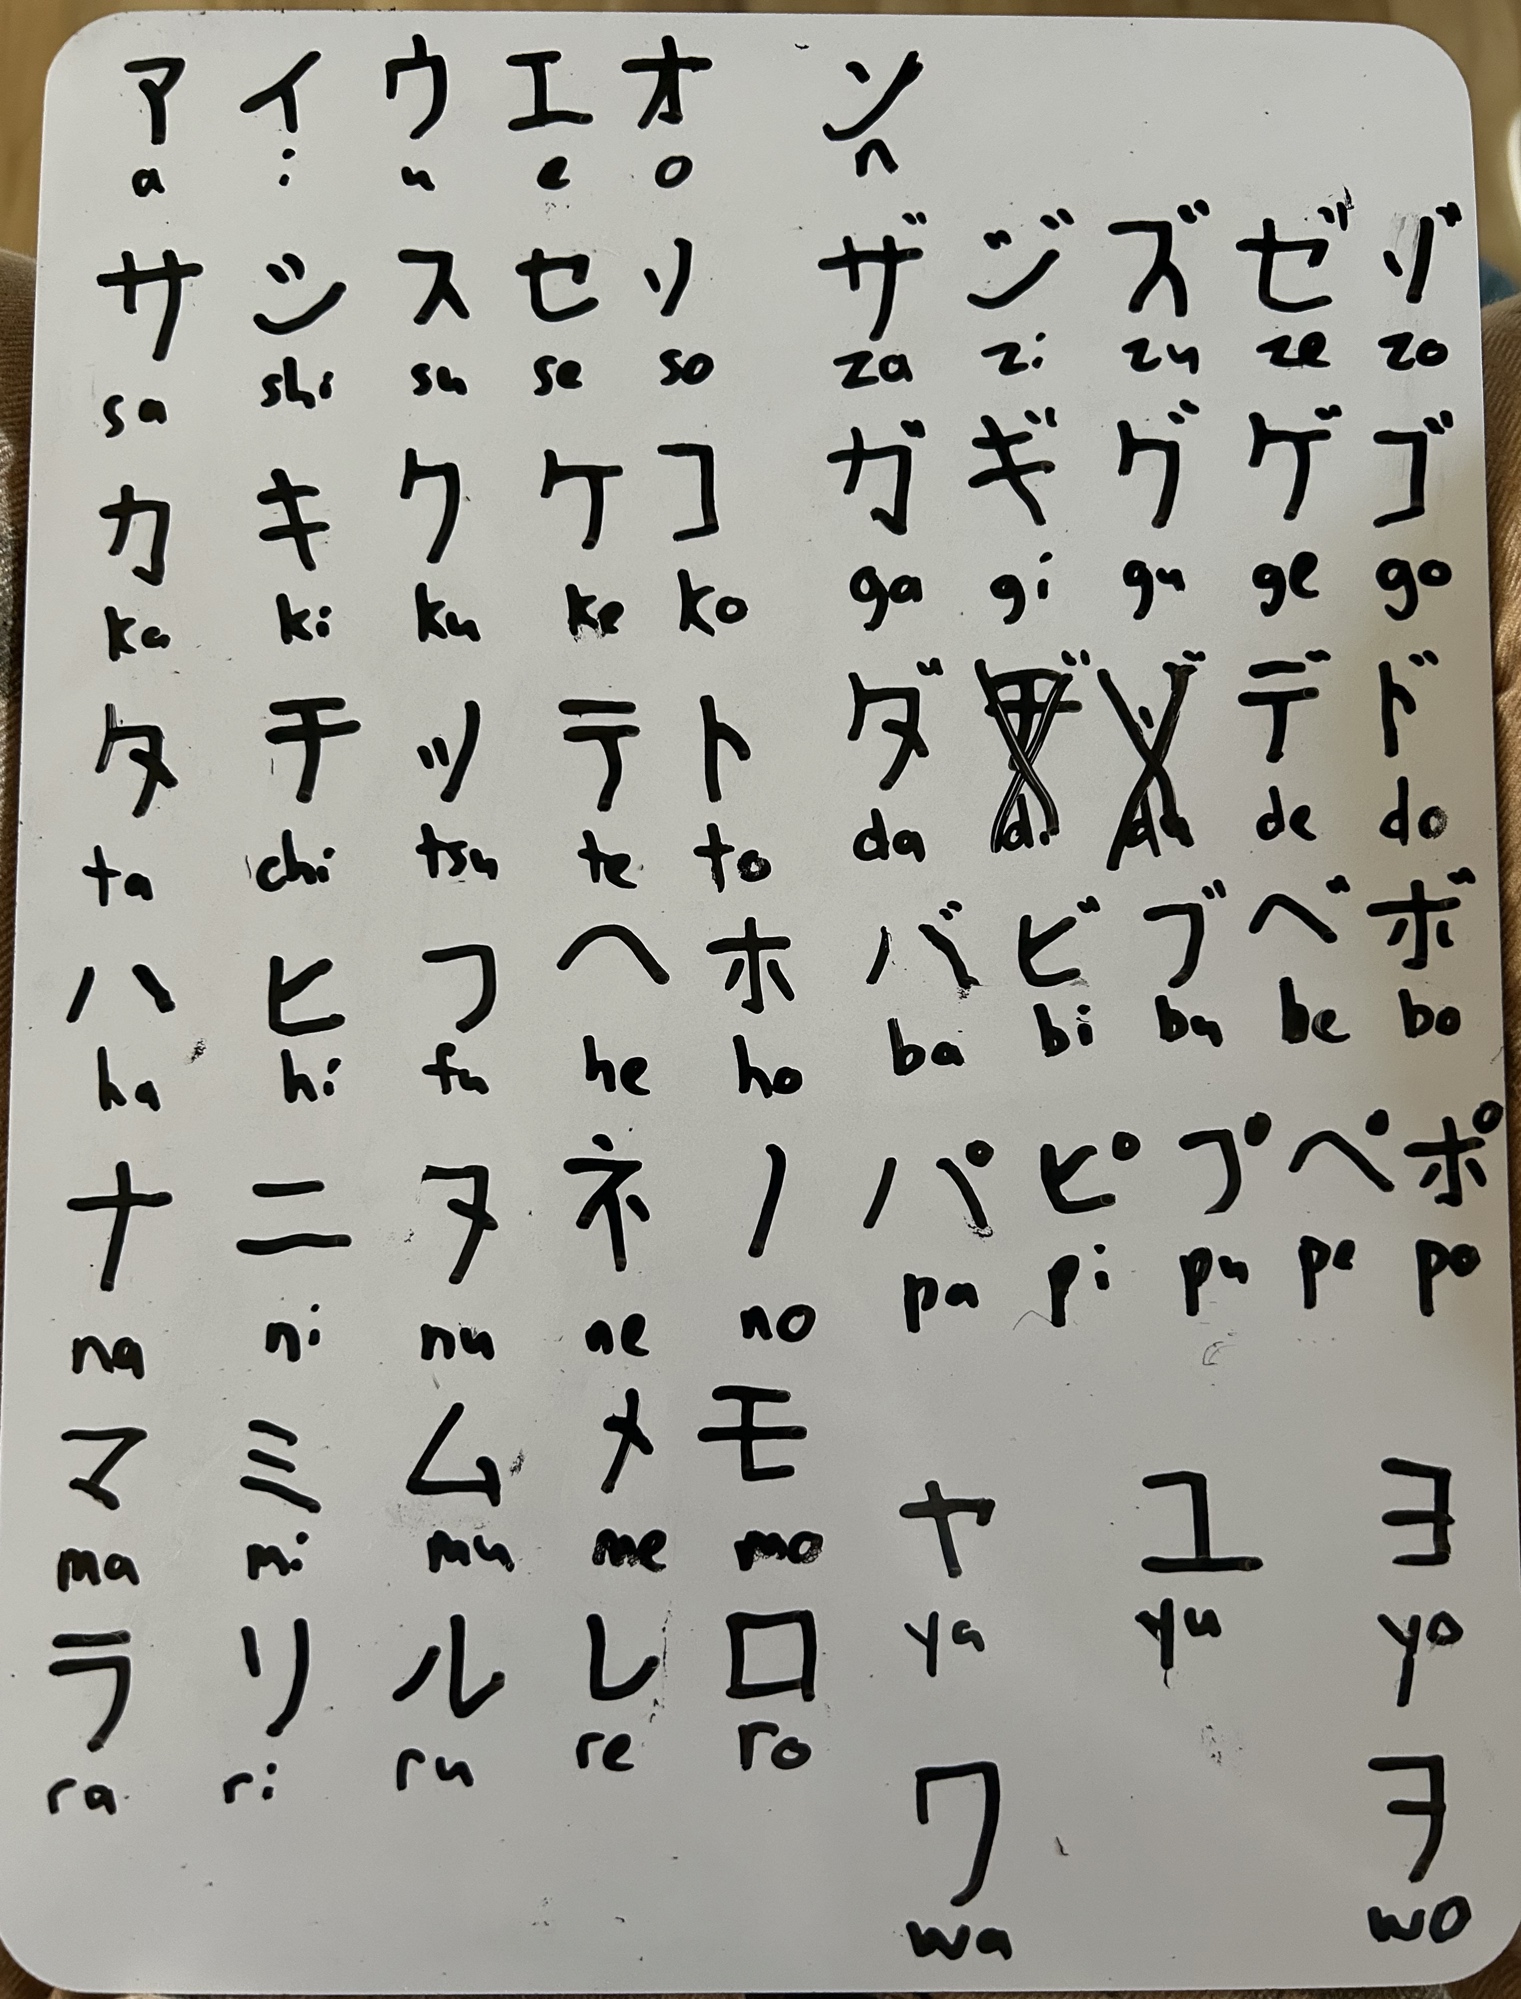 ア イ ウ エ オ ン
a i u e o n
サ シ ス セ ソ ザ ジ ズ ゼ ゾ
sa shi su se so za zi zu ze zo
カ キ ク ケ コ ガ ギ グ ゲ ゴ
ka ki ku ke ko ga gi gu ge go
タ チ ツ テ ト ダ ヂ ヅ デ ド
ta chi tsu te to da di du de do
ハ ヒ フ ヘ ホ バ ビ ブ ベ ボ
ha hi fu he ho ba bi bu be bo
ナ ニ ヌ ネ ノ パ ピ プ ペ ポ
na ni nu ne no pa pi pu pe po
マ ミ ム メ モ ヤ ユ ヨ
ma mi mu me mo ya yu yo
ラ リ ル レ ロ ワ ヲ
ra ri ru re ro wa wo